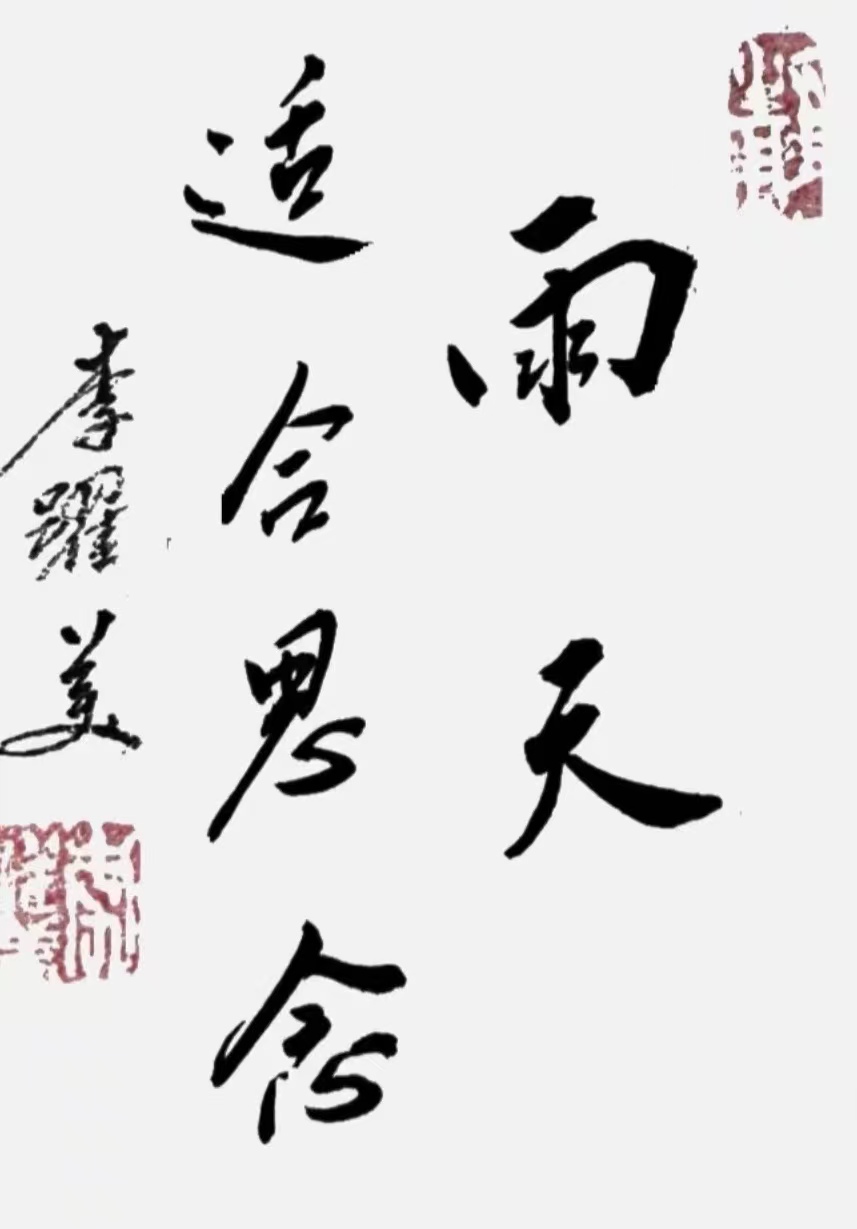 雨天
适合思念
李躍美